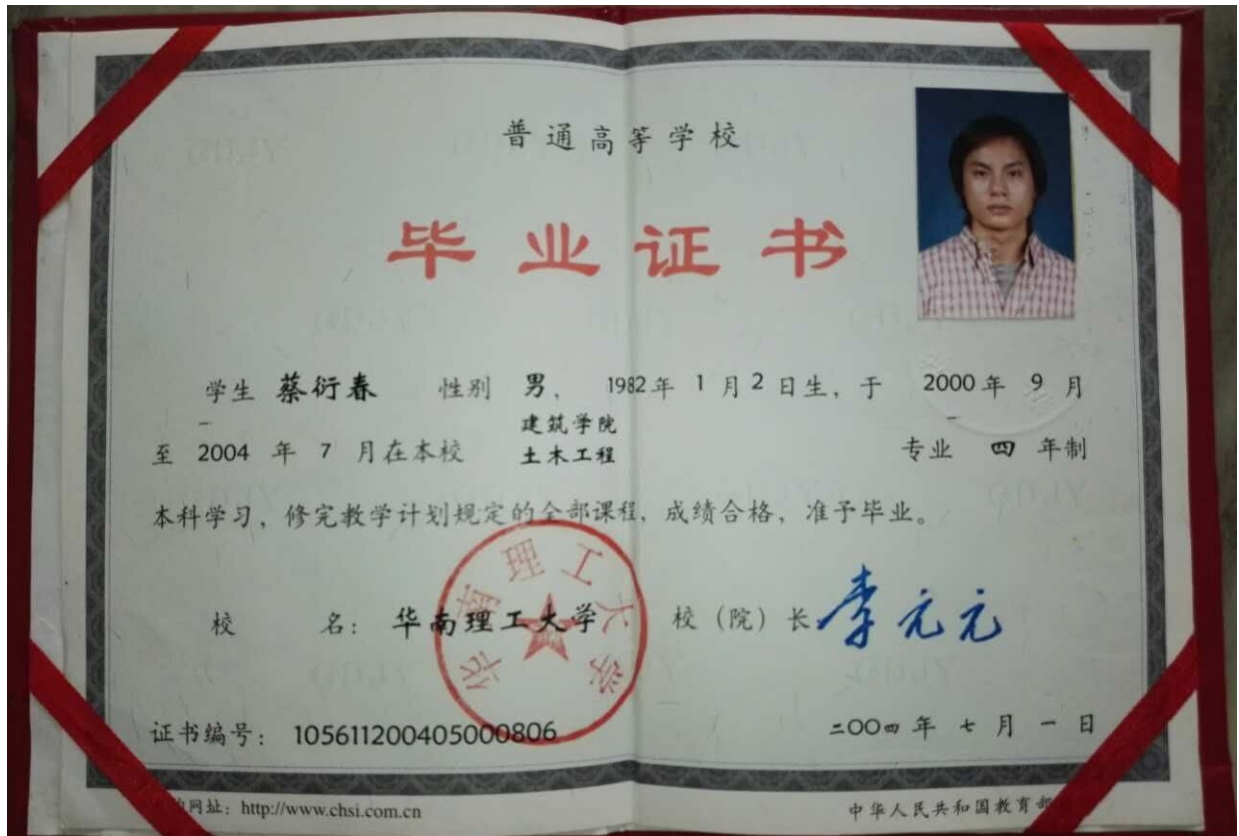 普通高等学校
毕业证书
学生 蔡衍春 性别 男, 1982年 1月2日生, 于 2000年 9月
建筑学院
至 2004 年 7 月在本校 土木工程 专业 四 年制
本科学习, 修完教学计划规定的全部课程, 成绩合格, 准予毕业。
华南理工大学
校 名: 华南理工大学 校(院)长 李元元
证书编号: 105611200405000806 二〇〇四年七月一日
网址: http://www.chsi.com.cn 中华人民共和国教育部